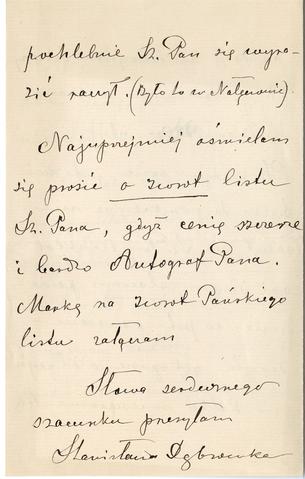 pochlebnie Sz. Pan się wyra-
zić raczył. (Było to w Nałęczowie).
Najuprzejmiej ośmielam
się prosić o zwrot listu
Sz. Pana, gdyż cenię szczerze
i bardzo Autograf Pana.
Markę na zwrot Pańskiego
listu załączam
Słowa serdecznego
szacunku przesyłam
Stanisława Dąbrowska